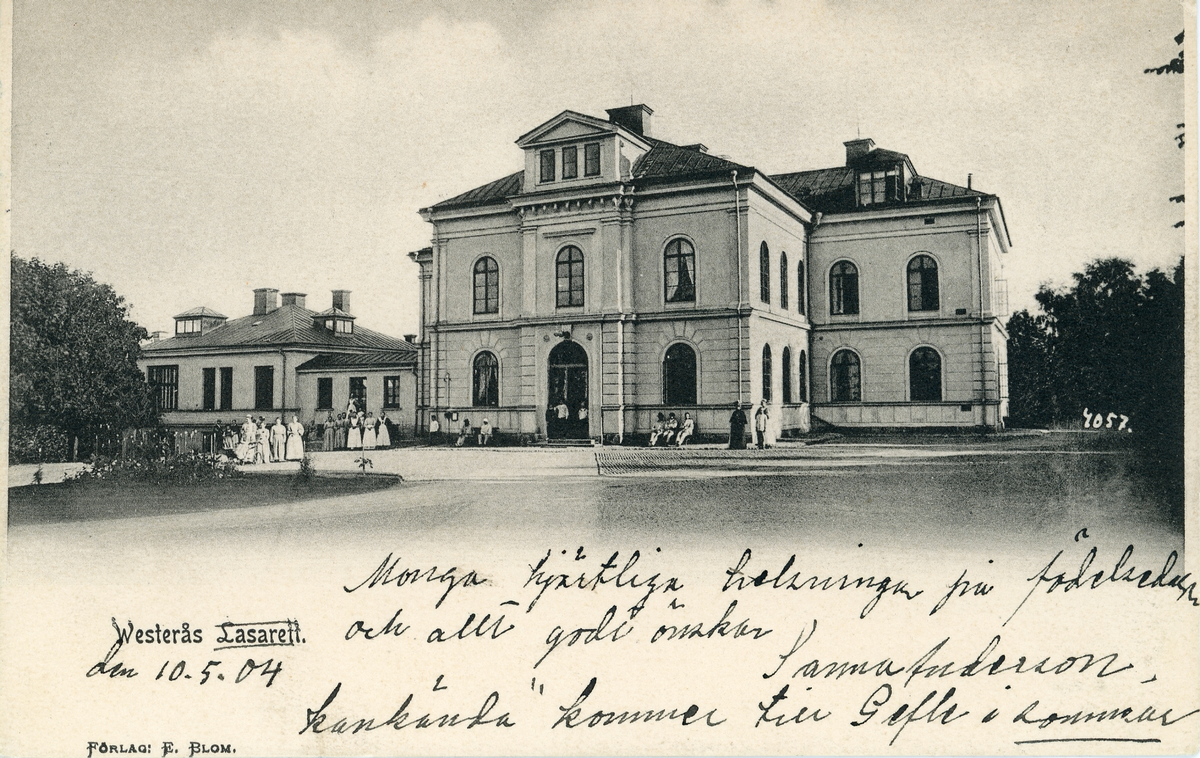 4057.
Monga hjärtliga helsningar på födelsedagen
och allt godt önskar
Westerås Lasarett.
Sanna Anderson.
den 10-5-04
kankända kommer till Gefle i sommar
FÖRLAG: E. BLOM.